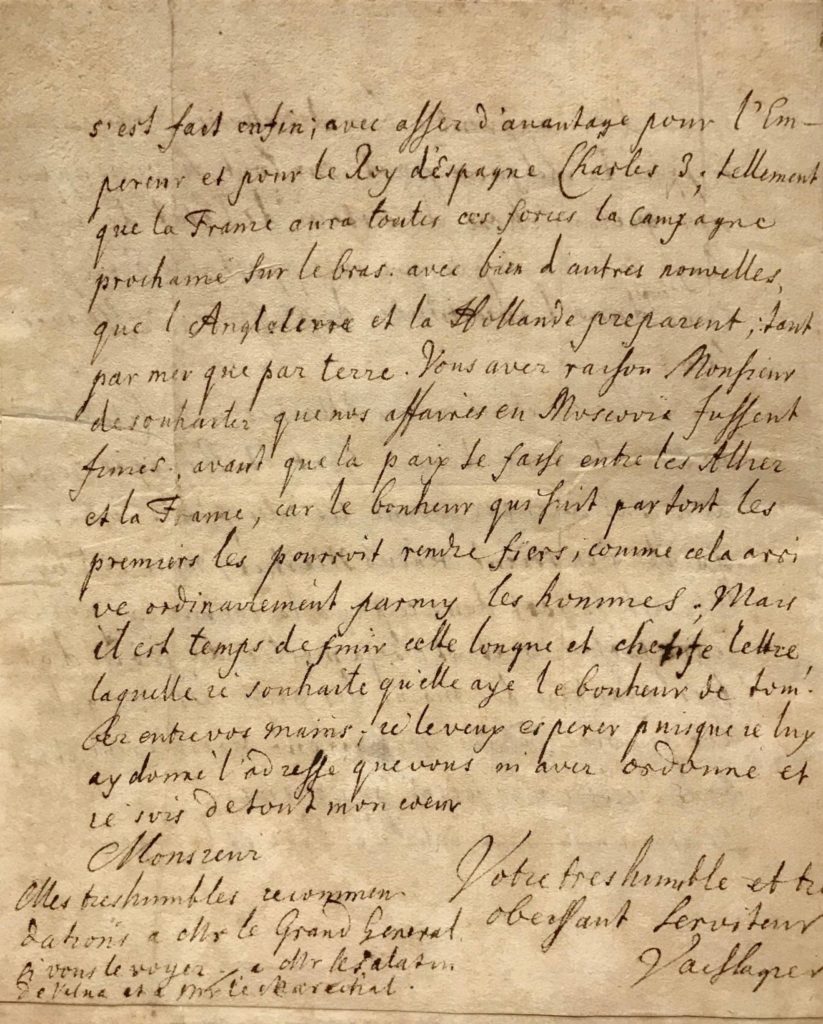 s'est fait enfin; avec assez d'avantage pour l'Em-
pereur et pour le Roy d'Espagne Charles 3; tellement
que la France aura toutes ces forces la campagne
prochaine sur le bras. avec bien d'autres nouvelles,
que l'Angleterre et la Hollande preparent, tant
par mer que par terre. Vous avez raison Monsieur
de souhaiter que nos affaires en Moscovie fussent
finies, avant que la paix se fasse entre les Alliez
et la France, car le bonheur qui suit partout les
premiers les pourroit rendre fiers, comme cela arri
ve ordinairement parmy les hommes; Mais
il est temps de finir cette longue et chetife lettre,
laquelle ie souhaite qu'elle aye le bonheur de tom-
ber entre vos mains; ie le veux esperer puisque ie luy
ay donné l'adresse que vous m'avez ordonné et
ie suis de tout mon coeur
Monsieur
Votre tres humble et tr
obeissant Serviteur
Mes tres humbles recommen-
dations a Mr le Grand General
si vous le voyez, a Mr le Palatin
de Vilna et a Mr le Marechal.